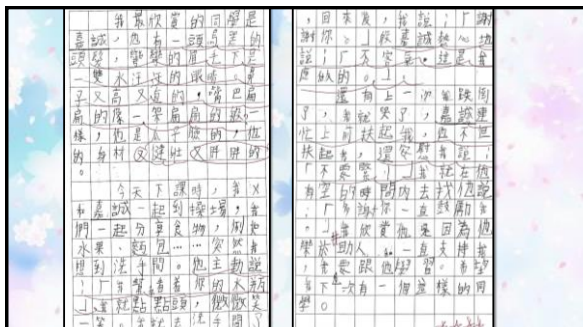 我最欣賞的同學是
嘉誠,他有一頭烏黑的
頭髮,彎彎的眉毛下是
一雙水汪汪的眼睛,鼻
子又高又直的,嘴巴扁
扁的像一架扁扁的
樣,他是瓜子臉的,他
的身材又健壯又胖胖的
。
今天下課時,我又
和嘉誠一起到操場,我
們一起分享食物,例如
水果、麵包……突然我
想到洗手間。他主動說
:「我幫你拿着你的水瓶
」我就點點頭,微微笑
一笑,我就去洗手間了
,回來後,我說:「謝
謝你。」嘉誠熱心地
說:「不客氣。這是我
應做的。」
還有上一次,我跌倒
了,我就哭了,嘉誠連
忙上前扶起我,他不但
扶起我,還安慰我說:
「不要緊!」我就在他
有空的時間內去找他說
:「多謝你一直鼓勵我
。」我欣賞他是因為他
樂於助人,一直支持我
,我要跟他學習。希望
我下一次有一個這樣的同
學。